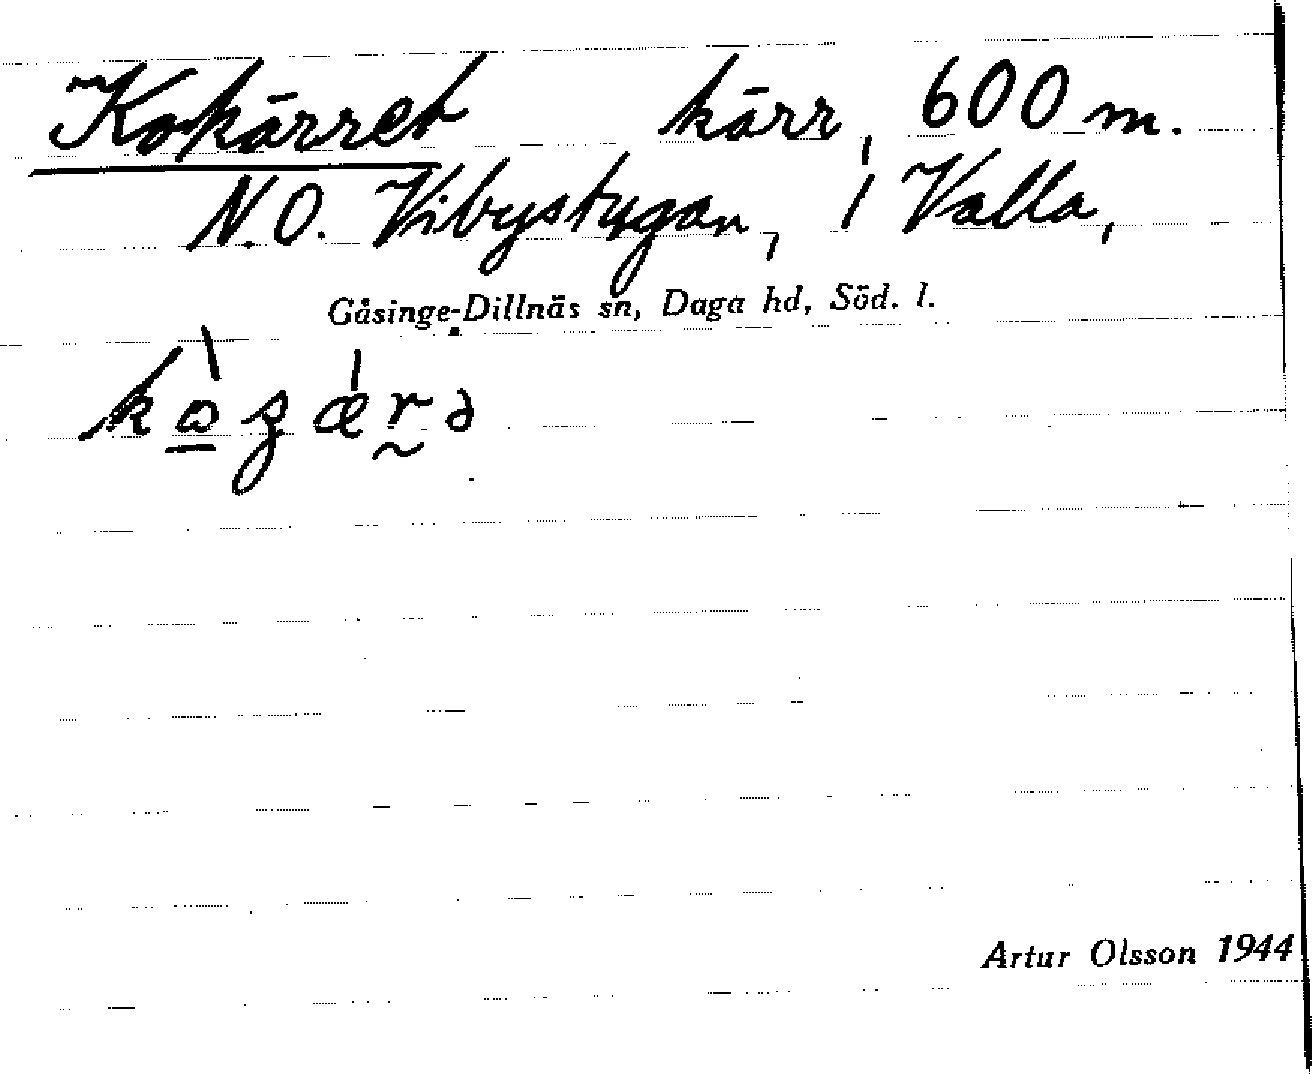 Kokärret kärr, 600 m.
N.O. Vibystugan, i Valla,
Gåsinge-Dillnäs sn, Daga hd, Söd. l.
Artur Olsson 1944